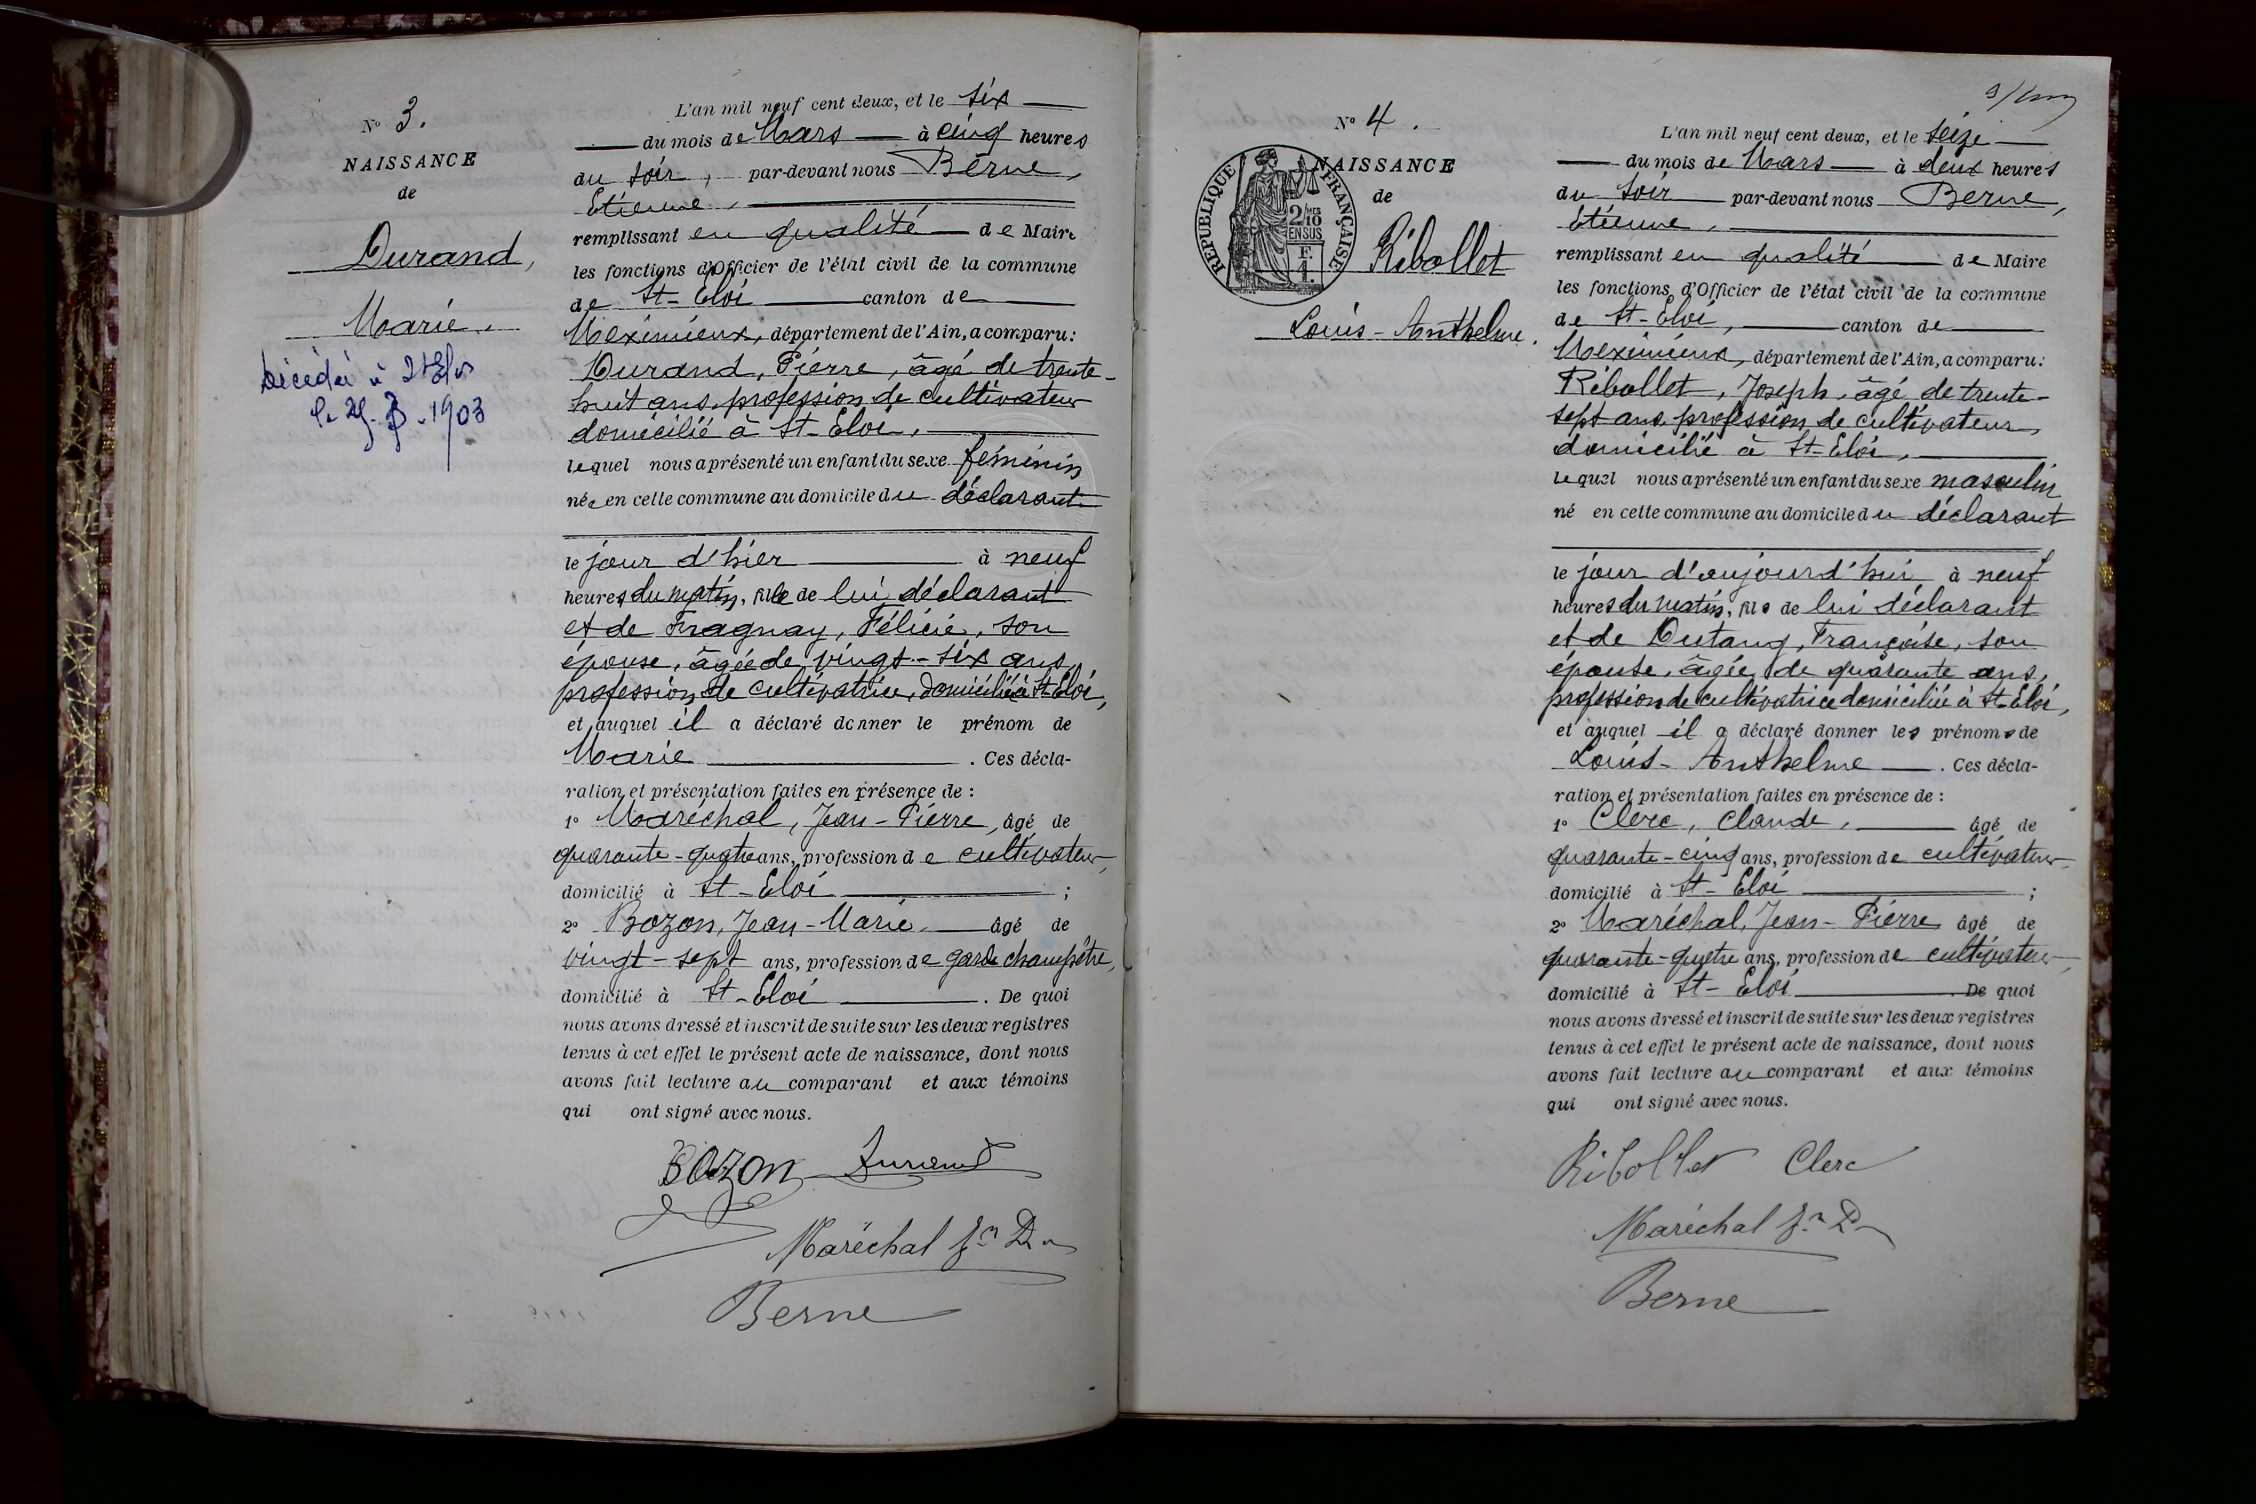 N° 3.
NAISSANCE
de
Durand,
Marie.
Décédée à
le 1903
L'an mil neuf cent deux, et le six
du mois de Mars à cinq heures
du soir, par-devant nous Berne,
Etienne,
remplissant en qualité de Maire
les fonctions d'Officier de l'état civil de la commune
de St-Eloi canton de
Meximieux, département de l'Ain, a comparu:
Durand, Pierre, âgé de trente-
huit ans, profession de cultivateur
domicilié à St-Eloi,
lequel nous a présenté un enfant du sexe féminin
née en cette commune au domicile du déclarant
le jour d'hier à neuf
heures du matin, fille de lui déclarant
et de Félicie, son
épouse, âgée de vingt-six ans,
profession de cultivatrice, domiciliée à St-Eloi,
et auquel il a déclaré donner le prénom de
Marie. Ces décla-
ration et présentation faites en présence de :
1° Maréchal, Jean-Pierre, âgé de
quarante-quatre ans, profession de cultivateur,
domicilié à St-Eloi ;
2° Bozon, Jean-Marie, âgé de
vingt-sept ans, profession de garde champêtre,
domicilié à St-Eloi. De quoi
nous avons dressé et inscrit de suite sur les deux registres
tenus à cet effet le présent acte de naissance, dont nous
avons fait lecture au comparant et aux témoins
qui ont signé avec nous.
Bozon Durand
Maréchal
Berne
N° 4.
NAISSANCE
de
RÉPUBLIQUE FRANÇAISE
2/10
EN SUS
F.
1.
Ribollet
Louis-Anthelme.
L'an mil neuf cent deux, et le seize
du mois de Mars à deux heures
du soir par-devant nous Berne,
Etienne,
remplissant en qualité de Maire
les fonctions d'Officier de l'état civil de la commune
de St-Eloi, canton de
Meximieux, département de l'Ain, a comparu:
Ribollet, Joseph, âgé de trente-
sept ans, profession de cultivateur,
domicilié à St-Eloi,
lequel nous a présenté un enfant du sexe masculin
né en cette commune au domicile du déclarant
le jour d'aujourd'hui à neuf
heures du matin, fils de lui déclarant
et de Dutang, Françoise, son
épouse, âgée de quarante ans,
profession de cultivatrice domiciliée à St-Eloi,
et auquel il a déclaré donner les prénoms de
Louis-Anthelme. Ces décla-
ration et présentation faites en présence de :
1° Clerc, Claude, âgé de
quarante-cinq ans, profession de cultivateur,
domicilié à St-Eloi ;
2° Maréchal, Jean-Pierre âgé de
quarante-quatre ans, profession de cultivateur,
domicilié à St-Eloi. De quoi
nous avons dressé et inscrit de suite sur les deux registres
tenus à cet effet le présent acte de naissance, dont nous
avons fait lecture au comparant et aux témoins
qui ont signé avec nous.
Ribollet Clerc
Maréchal
Berne